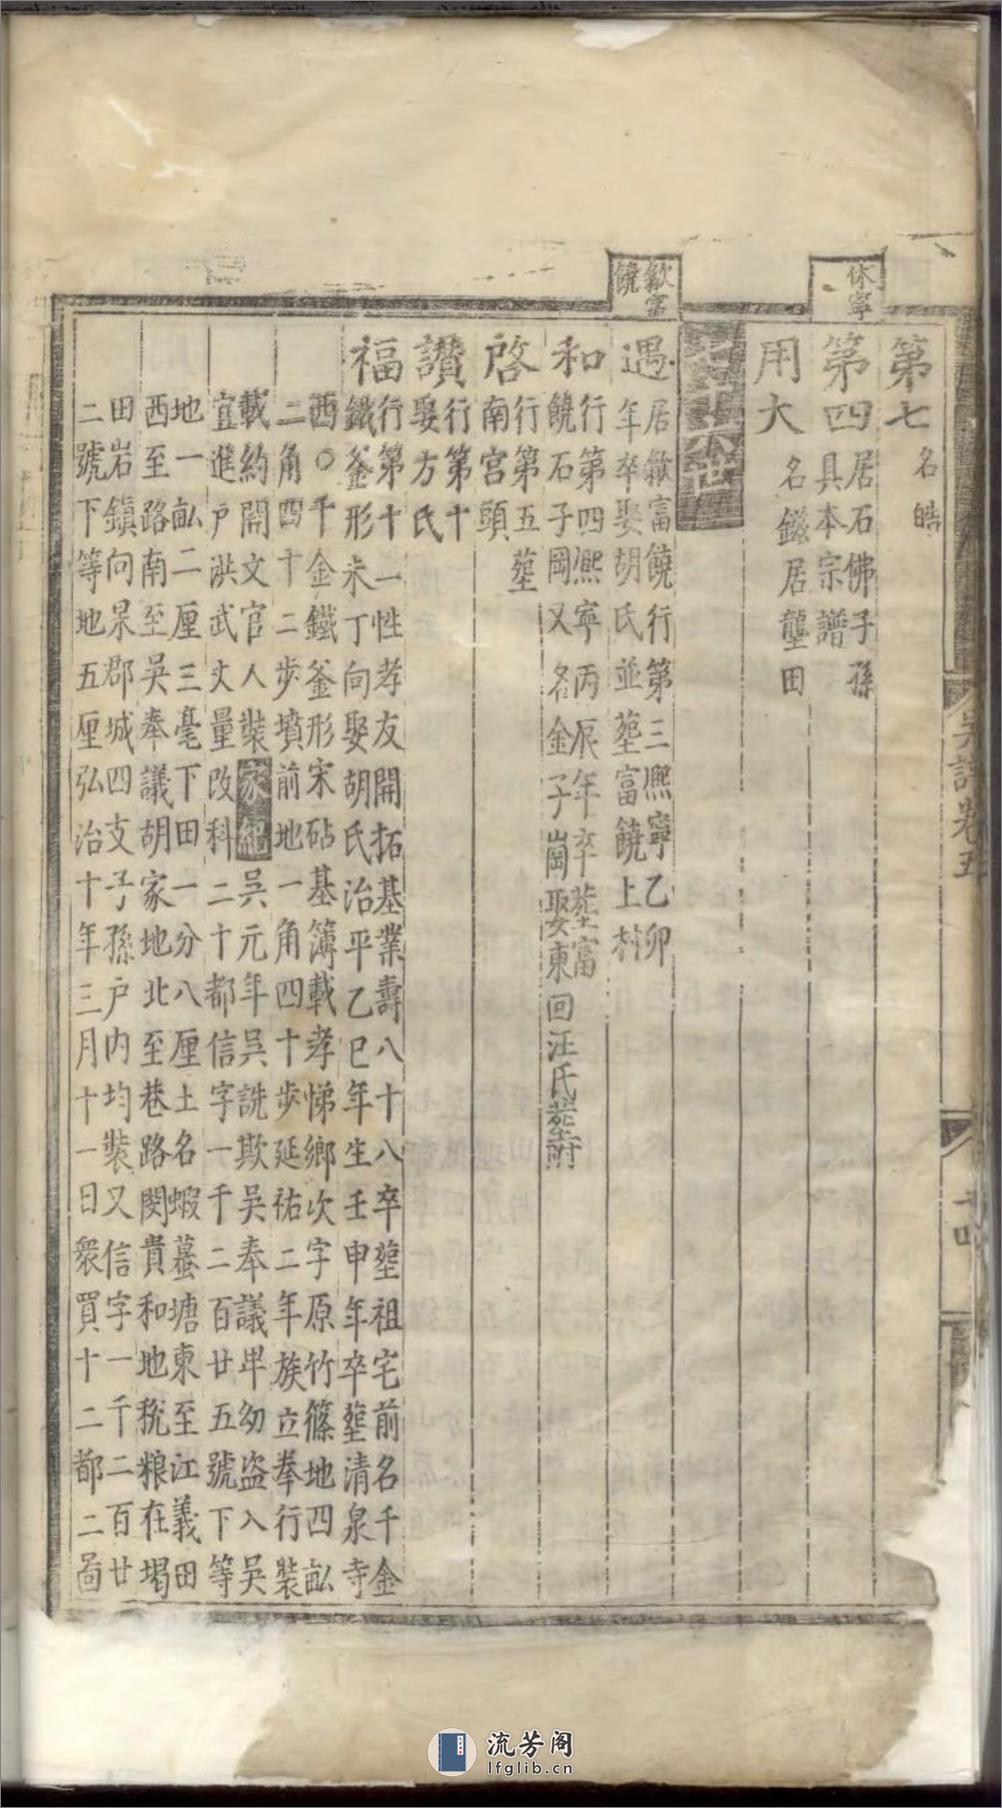 休寧
歙富
饒
第七
名皓
第四
居石佛子孫
具本宗譜
用大
名鐵居壟田
遇
居歙富饒行第三熈寧乙卯
年卒娶胡氏並塟富饒上村
和
行第四熈寧丙辰年卒塟富
饒石子岡又名金子崗娶東回汪氏塟附
啓
行第五塟
南宫頭
讃
行第十
娶方氏
福
行第十一性孝友開拓基業壽八十八卒塟祖宅前名千金
鐵釜形未丁向娶胡氏治平乙巳年生壬申年卒塟清泉寺
西○千金鐵釜形宋砧基簿載孝悌鄉次字原竹篠地四畆
二角四十二步墳前地一角四十步延祐二年族立奉行裝
載約開文官人裝家紀吳元年吳詵欺吳奉議早幼盗入吳
宜進户洪武丈量改科二十都信字一千二百廿五號下等
地一畆二厘三毫下田一分八厘土名蝦蟇塘東至江義田
西至路南至吳奉議胡家地北至巷路閔貴和地稅粮在堨
田岩鎭向杲郡城四支子孫户内均裝又信字一千二百廿
二號下等地五厘弘治十年三月十一日衆買十二都二啚
吳譜卷五
流芳阁
lfglib.cn